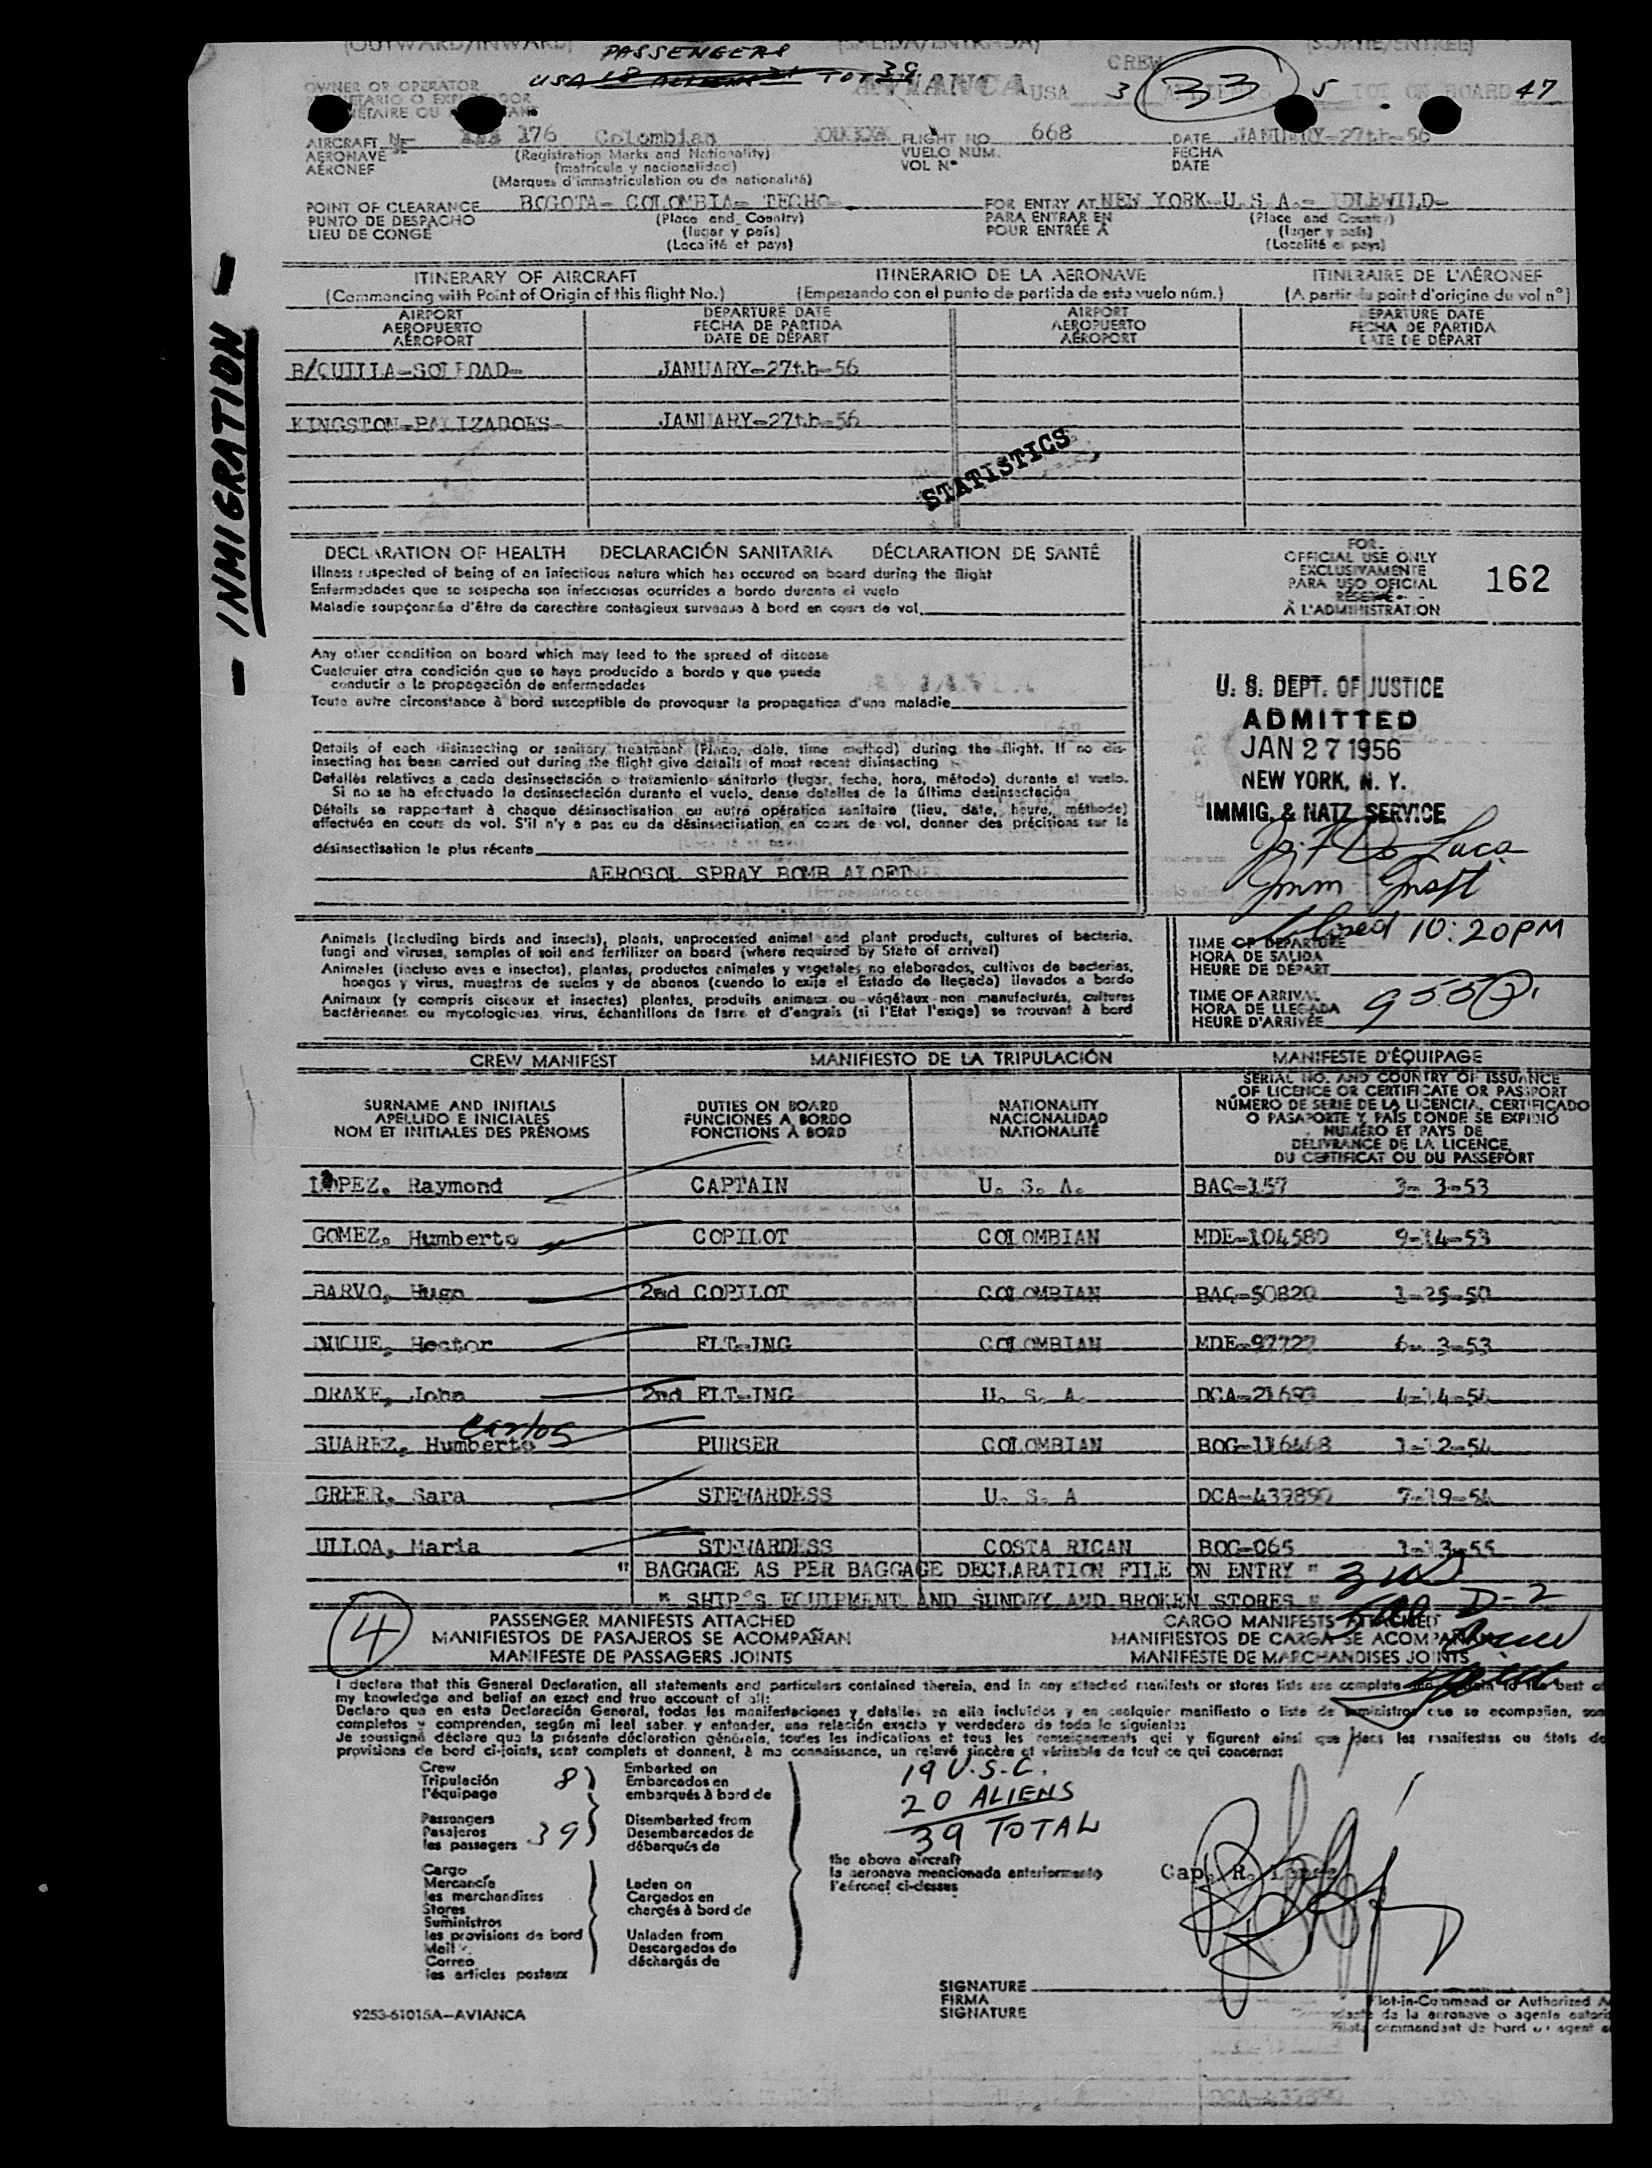 (OUTWARD/INWARD) (SALIDA/ENTRADA) (SORTIE/ENTREE)
PASSENGERS CREW
USA 18 ALIENS 21 TOT 39 AVIANCA USA 3 ALIENS 5 TOT ON BOARD 47
33
OWNER OR OPERATOR
AIRCRAFT N- 176 Colombian XXXXX FLIGHT NO. 668 DATE JANUARY-27th-56
AERONAVE (Registration Marks and Nationality) VUELO NÚM. FECHA
AÉRONEF (matrícula y nacionalidad) VOL Nº DATE
(Marques d'immatriculation ou de nationalité)
POINT OF CLEARANCE BOGOTA- COLOMBIA- TECHO- FOR ENTRY AT NEW YORK- U. S. A.- IDLEWILD-
PUNTO DE DESPACHO (Place and Country) PARA ENTRAR EN (Place and Country)
LIEU DE CONGÉ (lugar y país) POUR ENTRÉE À (lugar y país)
(Localité et pays) (Localité et pays)
- INMIGRATION -
ITINERARY OF AIRCRAFT ITINERARIO DE LA AERONAVE ITINERAIRE DE L'AÉRONEF
(Commencing with Point of Origin of this flight No.) (Empezando con el punto de partida de este vuelo núm.) (A partir du point d'origine du vol nº)
AIRPORT DEPARTURE DATE AIRPORT DEPARTURE DATE
AEROPUERTO FECHA DE PARTIDA AEROPUERTO FECHA DE PARTIDA
AÉROPORT DATE DE DÉPART AÉROPORT DATE DE DÉPART
B/QUILLA-SOLEDAD- JANUARY-27th-56
KINGSTON-PALIZADOES- JANUARY-27th-56
STATISTICS
DECLARATION OF HEALTH DECLARACIÓN SANITARIA DÉCLARATION DE SANTÉ
Illness suspected of being of an infectious nature which has occured on board during the flight
Enfermedades que se sospecha son infecciosas ocurridas a bordo durante el vuelo
Maladie soupçonnée d'être de caractère contagieux survenue à bord en cours de vol
FOR
OFFICIAL USE ONLY
EXCLUSIVAMENTE
PARA USO OFICIAL 162
RÉSERVÉ
À L'ADMINISTRATION
Any other condition on board which may lead to the spread of disease
Cualquier otra condición que se haya producido a bordo y que puede
conducir a la propagación de enfermedades
Toute autre circonstance à bord susceptible de provoquer la propagation d'une maladie
Details of each disinsecting or sanitary treatment (Place, date, time method) during the flight. If no dis-
insecting has been carried out during the flight give details of most recent disinsecting
Detalles relativos a cada desinsectación o tratamiento sanitario (lugar, fecha, hora, método) durante el vuelo.
Si no se ha efectuado la desinsectación durante el vuelo, dense detalles de la última desinsectación
Détails se rapportant à chaque désinsectisation ou autre opération sanitaire (lieu, date, heure, méthode)
effectués en cours de vol. S'il n'y a pas eu de désinsectisation en cours de vol, donner des précisions sur la
désinsectisation le plus récente
AEROSOL SPRAY BOMB ALOFT
U. S. DEPT. OF JUSTICE
ADMITTED
JAN 27 1956
NEW YORK, N. Y.
IMMIG. & NATZ SERVICE
Imm Inspt
Closed 10:20PM
Animals (including birds and insects), plants, unprocessed animal and plant products, cultures of bacteria,
fungi and viruses, samples of soil and fertilizer on board (where required by State of arrival)
Animales (incluso aves e insectos), plantas, productos animales y vegetales no elaborados, cultivos de bacterias,
hongos y virus, muestras de suelos y de abonos (cuando lo exija el Estado de llegada) llevados a bordo
Animaux (y compris oiseaux et insectes) plantes, produits animaux ou végétaux non manufacturés, cultures
bactériennes ou mycologiques, virus, échantillons de terre et d'engrais (si l'Etat l'exige) se trouvant à bord
TIME OF DEPARTURE
HORA DE SALIDA
HEURE DE DÉPART
TIME OF ARRIVAL
HORA DE LLEGADA 955 P.
HEURE D'ARRIVÉE
CREW MANIFEST MANIFIESTO DE LA TRIPULACIÓN MANIFESTE D'ÉQUIPAGE
SURNAME AND INITIALS
APELLIDO E INICIALES
NOM ET INITIALES DES PRÉNOMS
DUTIES ON BOARD
FUNCIONES A BORDO
FONCTIONS À BORD
NATIONALITY
NACIONALIDAD
NATIONALITÉ
SERIAL NO. AND COUNTRY OF ISSUANCE
OF LICENCE OR CERTIFICATE OR PASSPORT
NÚMERO DE SERIE DE LA LICENCIA, CERTIFICADO
O PASAPORTE Y PAÍS DONDE SE EXPIDIÓ
NUMÉRO ET PAYS DE
DÉLIVRANCE DE LA LICENCE,
DU CERTIFICAT OU DU PASSEPORT
LOPEZ. Raymond CAPTAIN U. S. A. BAQ-157 3- 3-53
GOMEZ. Humberto COPILOT COLOMBIAN MDE-104580 9-14-53
BARVO, Hugo 2nd COPILOT COLOMBIAN BAQ-50820 1-25-50
DUQUE, Hector FLT-ING COLOMBIAN MDE-97727 6- 3-53
DRAKE, John 2nd FLT-ING U. S. A. DCA-21693 4-14-54
Carlos
SUAREZ, Humberto PURSER COLOMBIAN BOG-116468 1-12-54
GREER. Sara STEWARDESS U. S. A DCA-439890 7-19-54
ULLOA, Maria STEWARDESS COSTA RICAN BOG-065 1-13-55
" BAGGAGE AS PER BAGGAGE DECLARATION FILE ON ENTRY "
" SHIP'S EQUIPMENT AND SUNDRY AND BROKEN STORES " D-2
4
PASSENGER MANIFESTS ATTACHED CARGO MANIFESTS ATTACHED
MANIFIESTOS DE PASAJEROS SE ACOMPAÑAN MANIFIESTOS DE CARGA SE ACOMPAÑAN
MANIFESTE DE PASSAGERS JOINTS MANIFESTE DE MARCHANDISES JOINTS
I declare that this General Declaration, all statements and particulars contained therein, and in any attached manifests or stores lists are complete best of
my knowledge and belief an exact and true account of all:
Declaro que en esta Declaración General, todas las manifestaciones y detalles en ella incluídos y en cualquier manifiesto o lista de suministros que se acompañan, son
completos y comprenden, según mi leal saber y entender, una relación exacta y verdadera de todo lo siguiente:
Je soussigné déclare que la présente déclaration générale, toutes les indications et tous les renseignements qui y figurent ainsi que dans les manifestes ou états de
provisions de bord ci-joints, sont complets et donnent, à ma connaissance, un relevé sincère et véritable de tout ce qui concerne:
Crew
Tripulación 8
l'équipage
Embarked on
Embarcados en
embarqués à bord de
Passengers
Pasajeros 39
les passagers
Disembarked from
Desembarcados de
débarqués de
19 U.S.C.
20 ALIENS
39 TOTAL
the above aircraft
la aeronave mencionada anteriormente
l'aéronef ci-dessus
Cap. R. Lopez
Cargo
Mercancía
les marchandises
Stores
Suministros
les provisions de bord
Mail
Correo
les articles postaux
Laden on
Cargados en
chargés à bord de
Unladen from
Descargados de
déchargés de
SIGNATURE
FIRMA
SIGNATURE
Pilot-in-Command or Authorized
de la aeronave o agente
commandant de bord ou agent
9253-61015A-AVIANCA
DCA-439890